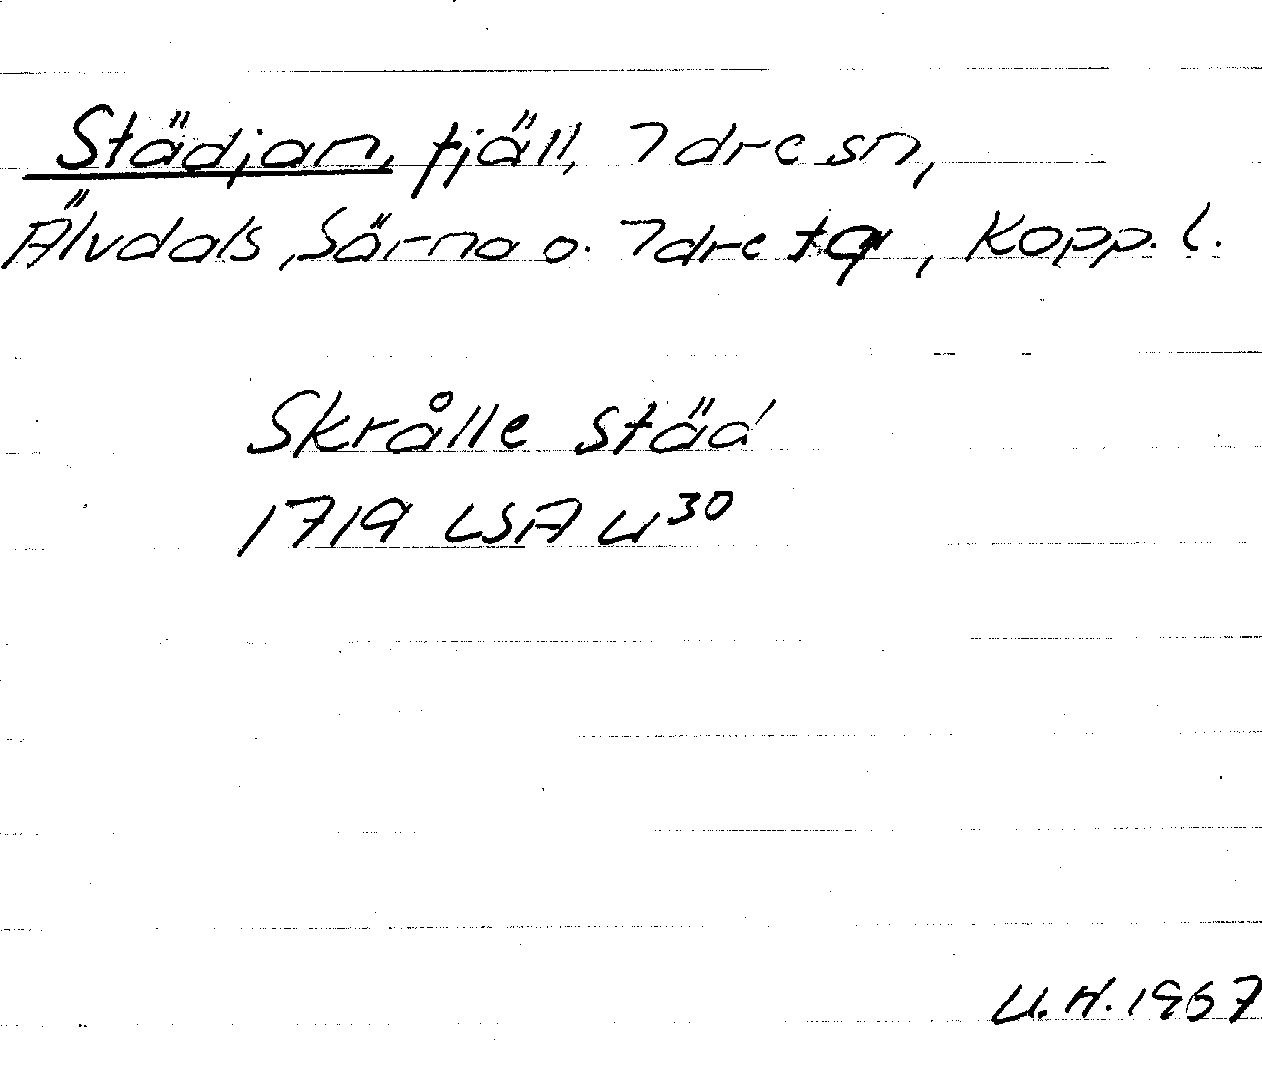 Städjan, fjäll, Idre sn,
Älvdals, Särna o. Idre tg, Kopp. l.
Skrålle städ
1719 LSA U30
U.H. 1967